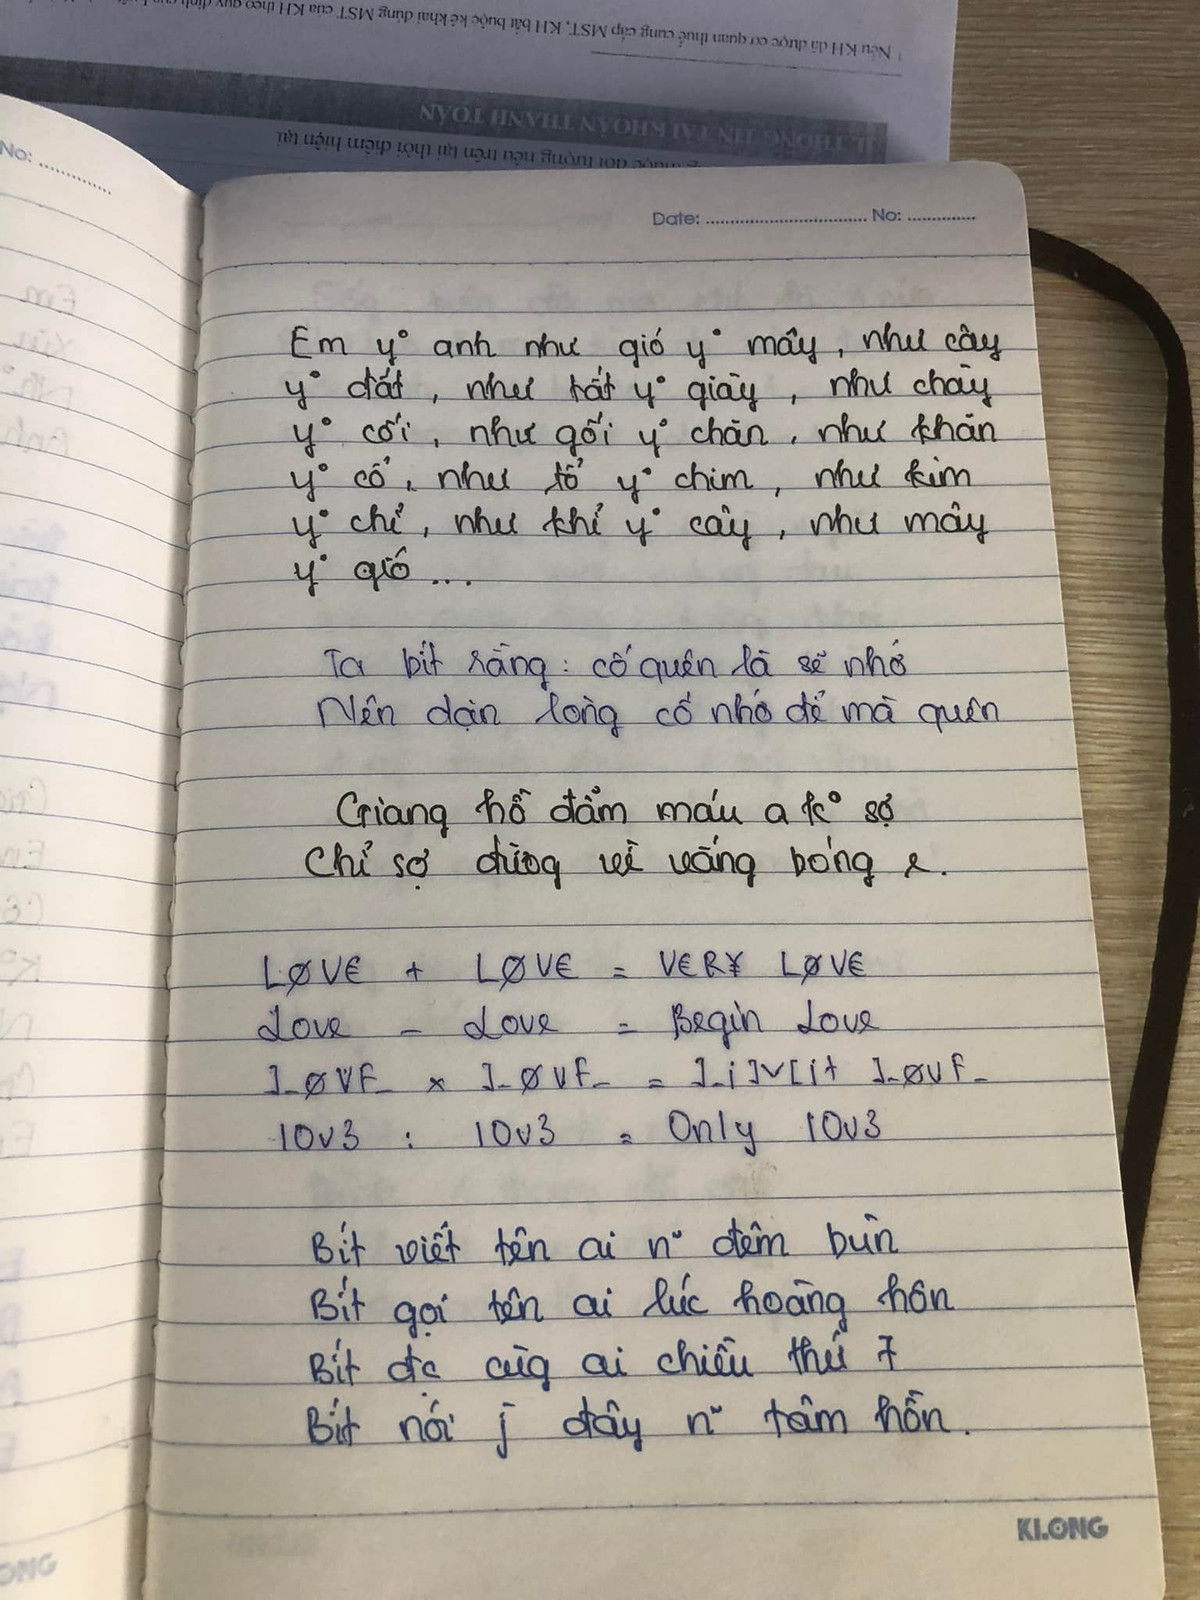 ¹ Nếu KH đã được cơ quan thuế cung cấp MST, KH bắt buộc kê khai đúng MST của KH theo quy định
II. THÔNG TIN TÀI KHOẢN THANH TOÁN
thuộc đối tượng nêu trên tại thời điểm hiện tại
No: ..............
Date: ................................. No: ..............
Em y° anh như gió y° mây, như cây
y° đất, như tất y° giày, như chày
y° cối, như gối y° chăn, như khăn
y° cổ, như tổ y° chim, như kim
y° chỉ, như khỉ y° cây, như mây
y° gió...
Ta bít rằng: cố quên là sẽ nhớ
Nên dặn lòng cố nhớ để mà quên
Giang hồ đẫm máu a k° sợ
Chỉ sợ đường về vắng bóng e.
LØV€ + LØV€ = V€R¥ LØV€
Love - Love = Begin Love
]_ØVF_ x ]_ØVF_ = ]_i]v[it ]_ØVF_
10v3 : 10v3 = Only 10v3
Bít viết tên ai n~ đêm bùn
Bít gọi tên ai lúc hoàng hôn
Bít đc cùg ai chiều thứ 7
Bít nói j đây n~ tâm hồn.
KLONG